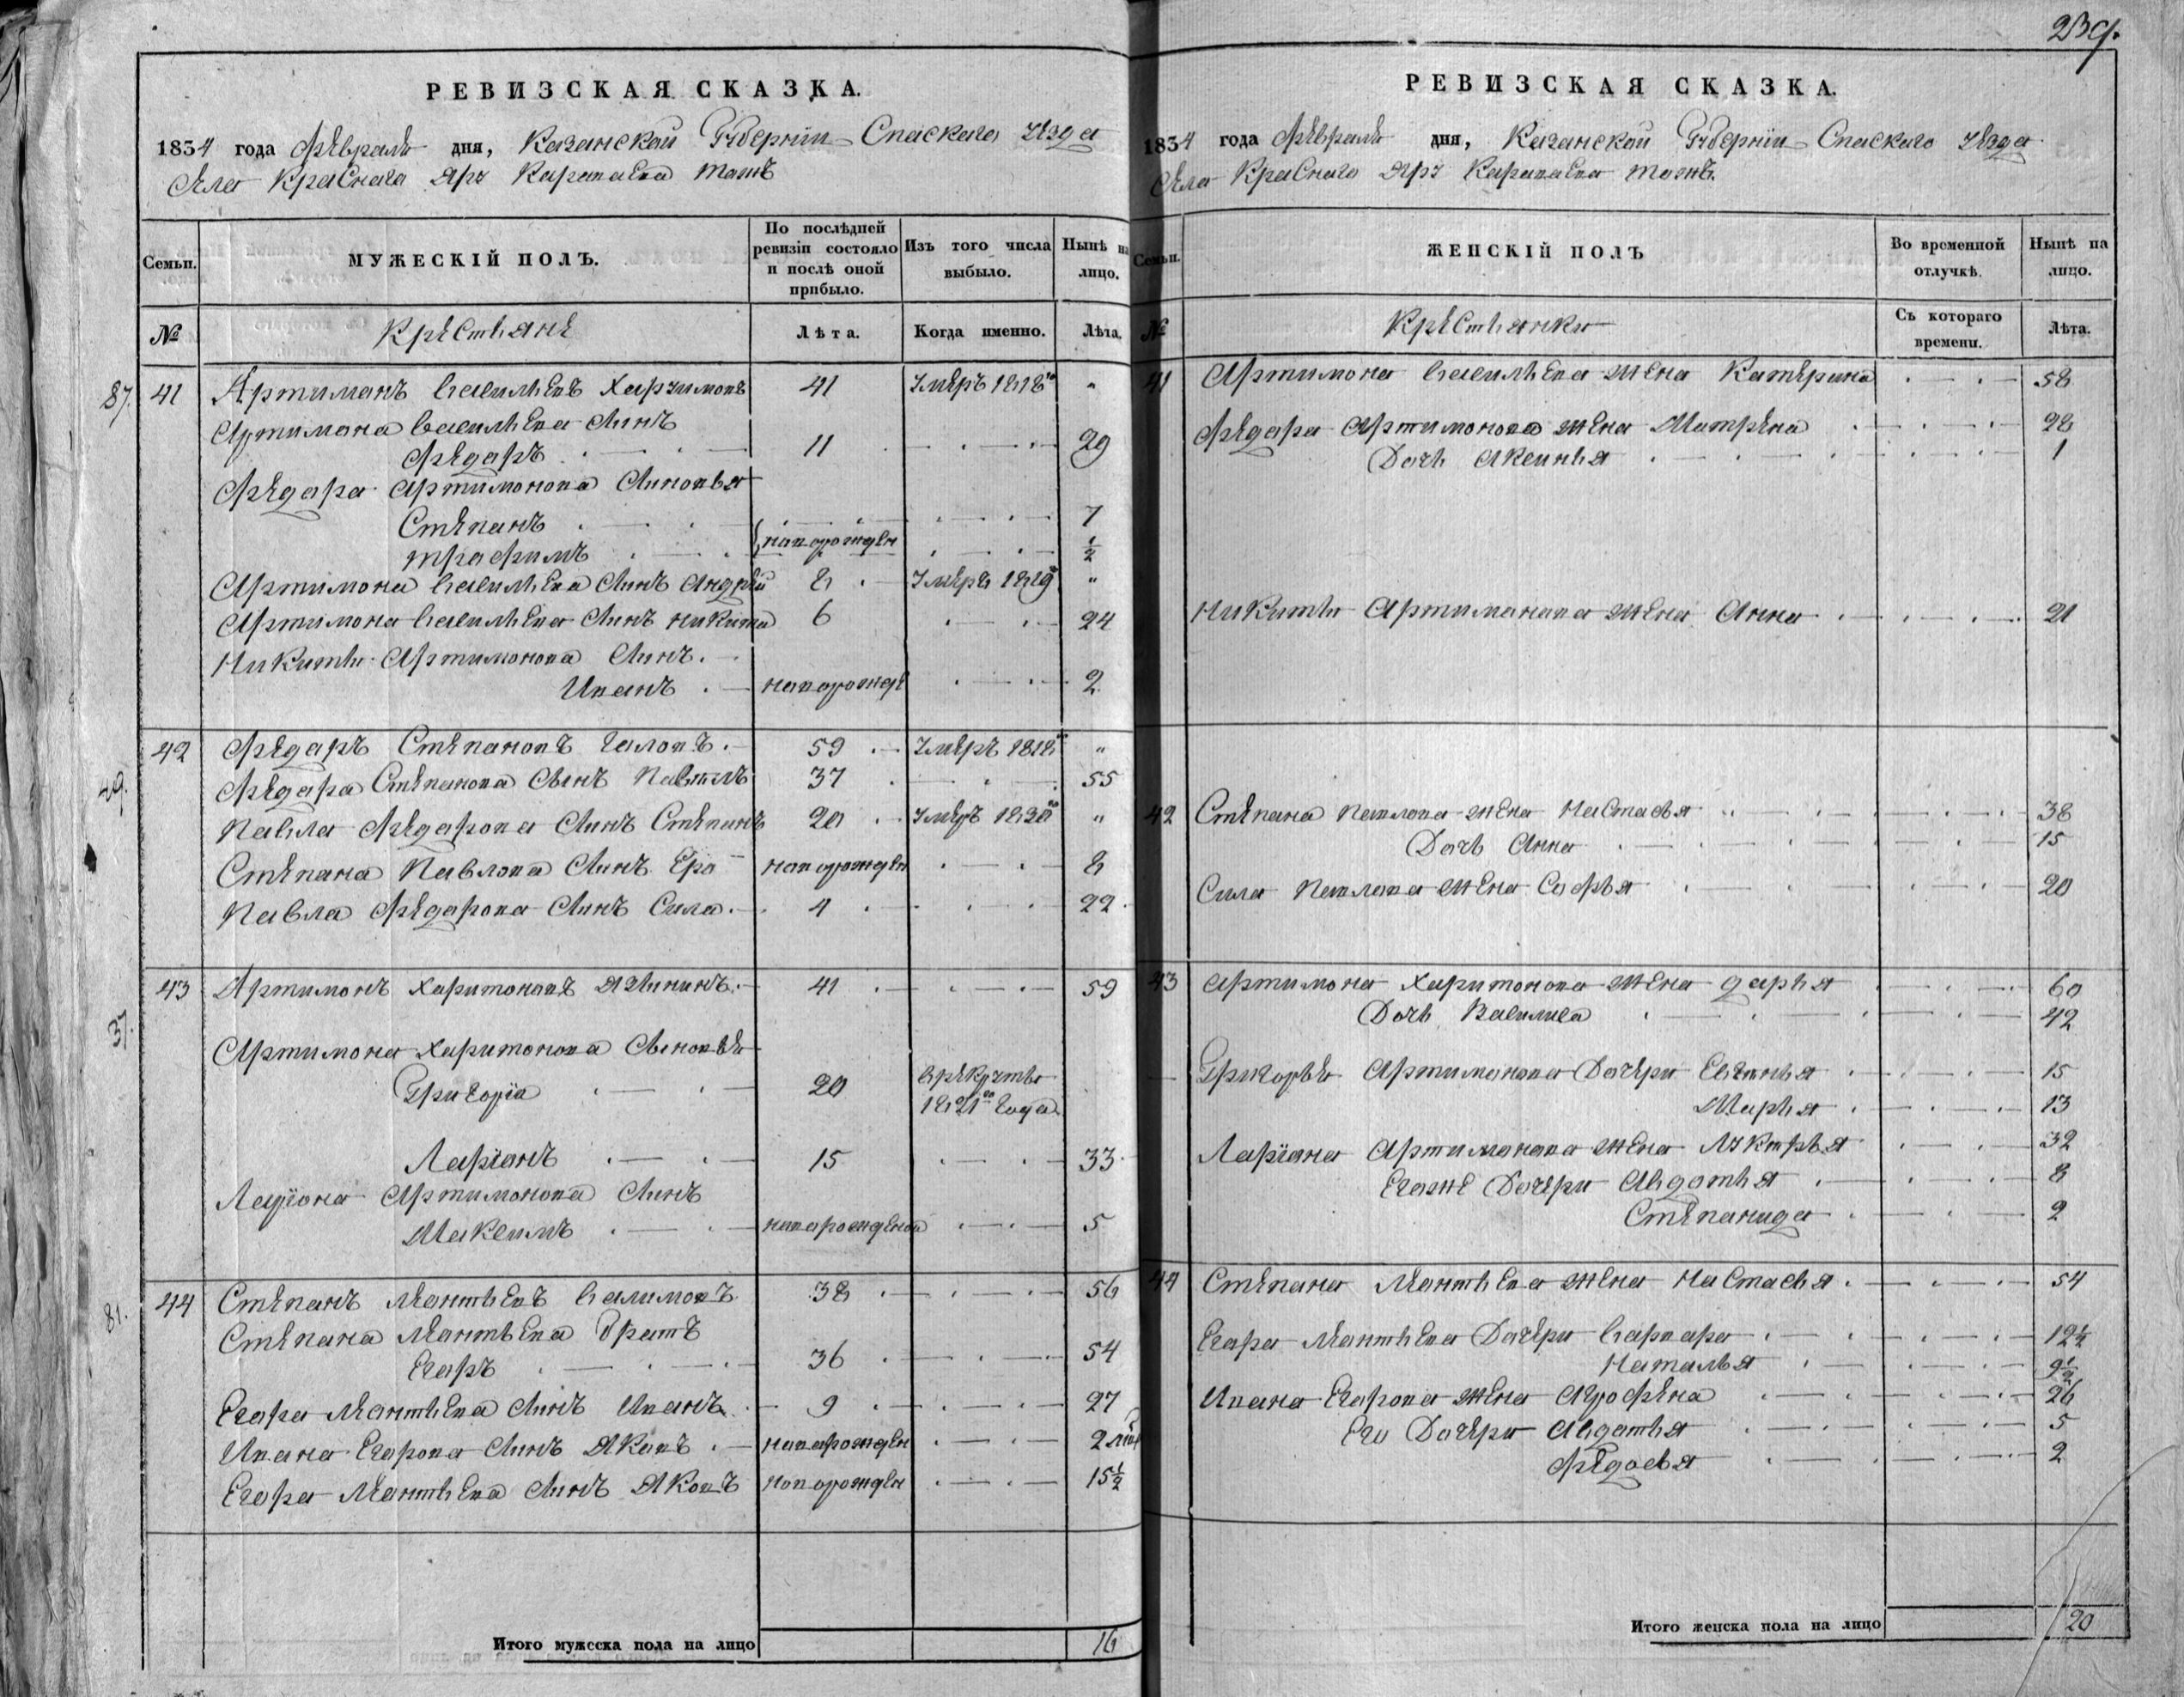 239.
РЕВИЗСКАЯ СКАЗКА.
1834 года Февраля дня, Казанской Губернiи Спаскаго уезда
Села Краснаго Яръ тожъ
Семьи.
МУЖЕСКIЙ ПОЛЪ.
По послѣдней ревизiи состояло и послѣ оной прибыло.
Изъ того числа выбыло.
Нынѣ на лицо.
№
Крестьяне
Лѣта.
Когда именно.
Лѣта.
87. 41 Артимонъ Васильевъ 41 Умеръ 1818го "
Артимона Васильева Сынъ
Федаръ 11 29
Федара Артимонова Сыновья
Степанъ 7
Трафимъ новорожден 1/2
Артимона Васильева Сынъ Андрей 8 Умеръ "
Артимона Васильева Сынъ Никита 6 24
Никиты Артимонова Сынъ
Иванъ новорожде 2
49. 42 Федаръ Степановъ 59 Умеръ 1818 "
Федара Степанова Сынъ Павилъ 37 55
Павла Федарова Сынъ Степанъ 20 Умеръ 1830го "
Степана Павлова Сынъ новорожден 8
Павла Федарова Сынъ Сила 4 22
37. 43 Артимонъ Харитоновъ 41 59
Артимона Харитонова Сыновьи
Григорiй 20 врекруты
1821го Года
Ларiонъ 15 33
Ларiона Артимонова Сынъ
Максимъ новорожденой 5
81. 44 Степанъ Мантьевъ 38 56
Степана Мантьева Братъ
Егаръ 36 54
Егара Мантьева Сынъ Иванъ 9 27
Ивана Егарова Сынъ Яковъ новорожден 2
Егара Мантьева Сынъ Яковъ новорожден 15 1/2
Итого мужеска пола на лицо 16
РЕВИЗСКАЯ СКАЗКА.
1834 года Февраля дня, Казанской Губернiи Спаскаго уезда
Села Краснаго Яръ тожъ.
Семьи.
ЖЕНСКIЙ ПОЛЪ
Во временной отлучкѣ.
Нынѣ на лицо.
№
Крестьянки
Съ котораго времени.
Лѣта.
41 Артимона Васильева жена Катерина 58
Федара Артимонова жена Матрена 28
Дочь Аксинья 1
Никиты Артимонова жена Анна 21
42 Степана Павлова жена Настасья 38
Дочь Анна 15
Сила Павлова жена Софья 20
43 Артимона Харитонова жена Дарья 60
Дочь Василиса 42
Григорьи Артимонова Дочери 15
Марья 13
Ларiона Артимонова жена 32
Егоже Дочери Авдотья 8
Степанида 2
44 Степана Мантьева жена Настасья 54
Егара Мантьева Дочери Варвара 12 1/2
Наталья 9 1/2
Ивана Егарова жена Агрофена 26
Его Дочери Авдотья 5
Федосья 2
Итого женска пола на лицо 20